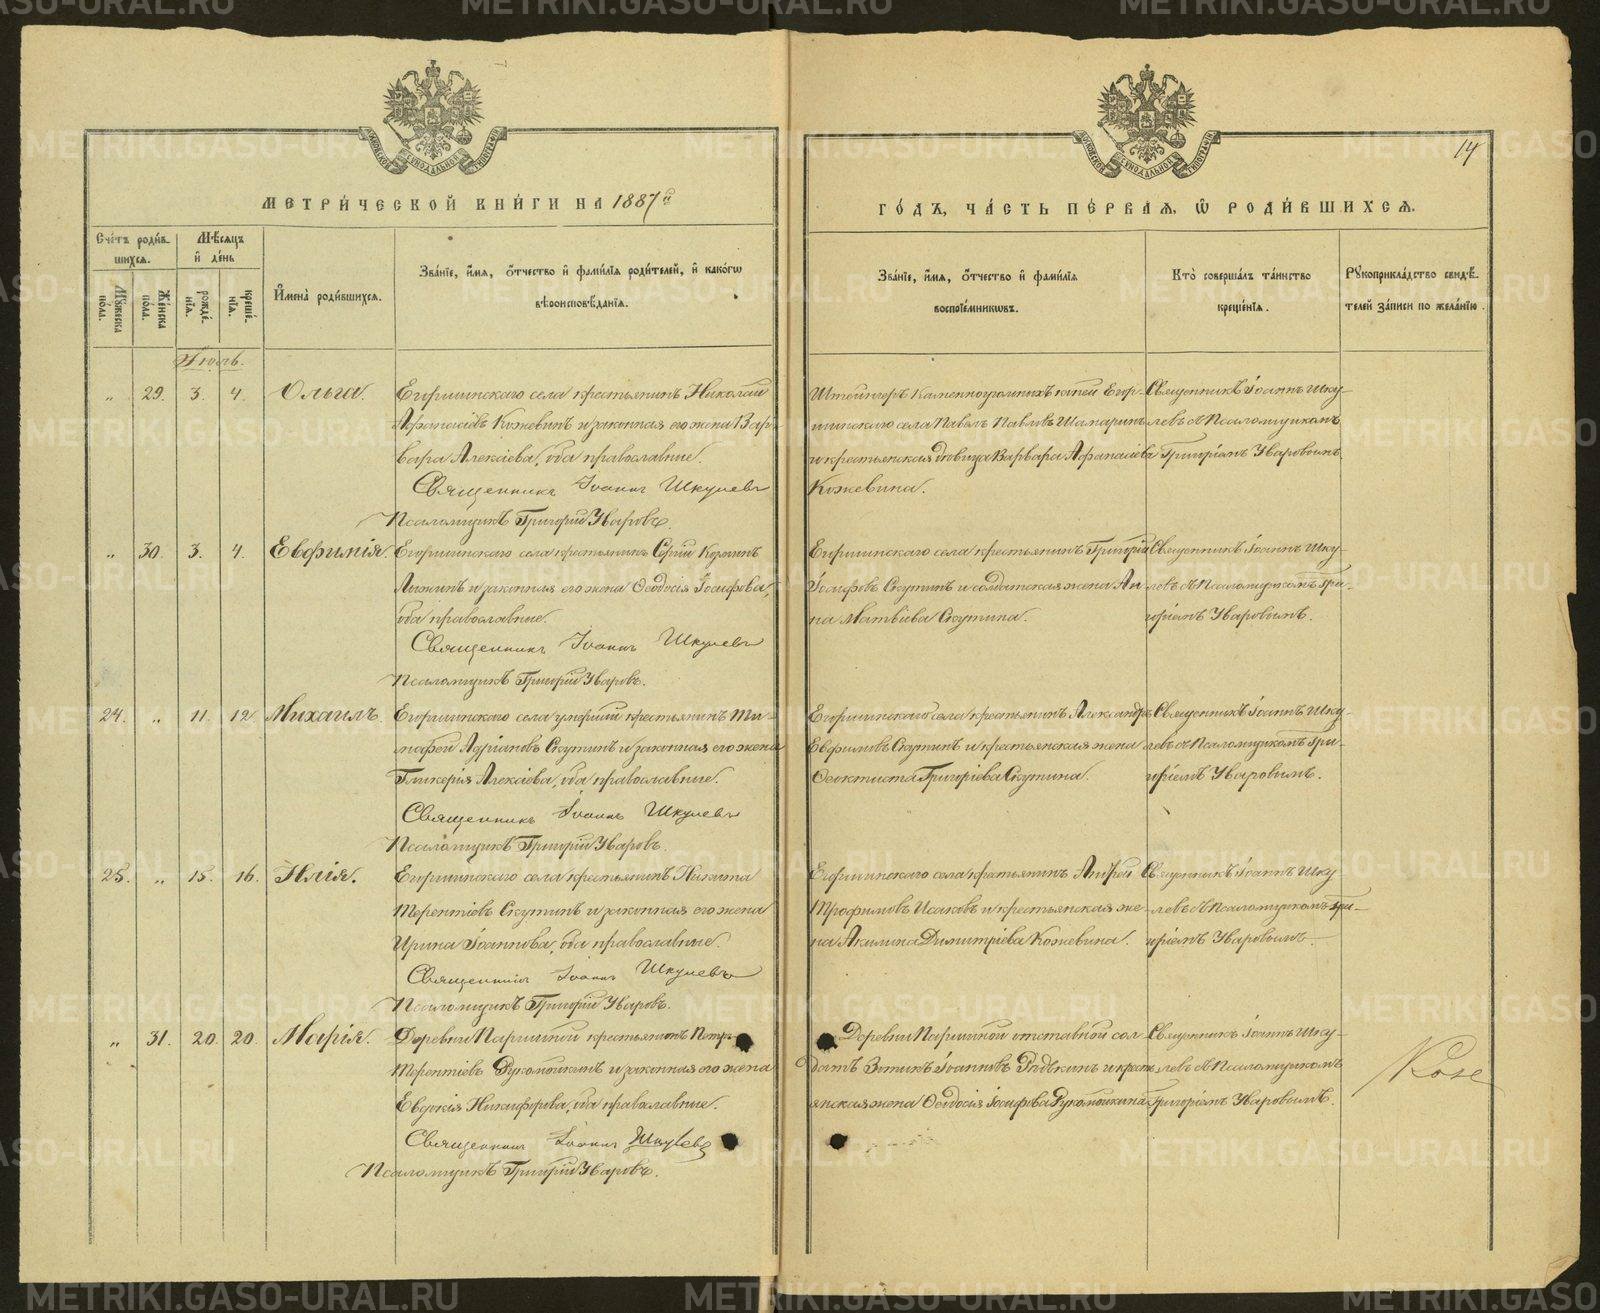 МЕТРИ́ЧЕСКОЙ КНИ́ГИ НА 1887й
Сче́тъ роди́в-
шихся.
Мѣ́сяцъ
и҆ де́нь
Му́жеска
по́ла.
Же́нска
по́ла.
рожде́-
нїя.
креще́-
нїя.
И҆мена̀ роди́вшихся.
Зва́нїе, и҆́мя, ѻ҆́тчество и҆ фами́лїя роди́телей, и҆ како́гѡ
вѣроисповѣ́данїя.
Іюль.
" 29. 3. 4. Ольга. Егоршинскаго села крестьянинъ Николай
Афанасіевъ Кожевинъ и законная его жена Вар-
вара Алексіева, оба православные.
Священникъ Іоаннъ Шкулевъ
Псаломщикъ Григорій Уваровъ.
" 30. 3. 4. Евфимія. Егоршинскаго села крестьянинъ Сергій Козминъ
и законная его жена Ѳеодосія Іосифова,
оба православные.
Священникъ Іоаннъ Шкулевъ
Псаломщикъ Григорій Уваровъ.
24. " 11. 12. Михаилъ. Егоршинскаго села умершій крестьянинъ Ти-
мофей Адріановъ Скутинъ и законная его жена
Гликерія Алексіева, оба православные.
Священникъ Іоаннъ Шкулевъ
Псаломщикъ Григорій Уваровъ.
25. " 15. 16. Илія. Егоршинскаго села крестьянинъ Никита
Терентіевъ Скутинъ и законная его жена
Ирина Іоаннова, оба православные.
Священникъ Іоаннъ Шкулевъ
Псаломщикъ Григорій Уваровъ.
" 31. 20. 20. Марія. Деревни Паршиной крестьянинъ Петръ
Терентіевъ Рукомойкинъ и законная его жена
Евдокія Никифорова, оба православные.
Священникъ Іоаннъ Шкулевъ
Псаломщикъ Григорій Уваровъ.
14
ГО́ДЪ, ЧА́СТЬ ПЕ́РВАЯ, Ѽ РОДИ́ВШИХСЯ.
Зва́нїе, и҆́мя, ѻ҆́тчество и҆ фами́лїя
воспрїе́мникѡвъ.
Кто̀ соверша́лъ та́инство
креще́нїя.
Рꙋкоприкла́дство свидѣ́-
телей за́писи по жела́нїю.
Штейгеръ Каменноугольныхъ копей Егор-
шинскаго села Павелъ Павловъ Шамаринъ
и крестьянская дѣвица Варвара Афанасіева
Кожевина.
Священникъ Іоаннъ Шку-
левъ съ Псаломщикомъ
Григоріемъ Уваровымъ.
Егоршинскаго села крестьянинъ Григорій
Іосифовъ Скутинъ и солдатская жена Ан-
на Матвіева Скутина.
Священникъ Іоаннъ Шку-
левъ съ Псаломщикомъ Гри-
горіемъ Уваровымъ.
Егоршинскаго села крестьянинъ Александръ
Евфимовъ Скутинъ и крестьянская жена
Ѳеоктиста Григоріева Скутина.
Священникъ Іоаннъ Шку-
левъ съ Псаломщикомъ Гри-
горіемъ Уваровымъ.
Егоршинскаго села крестьянинъ Андрей
Трофимовъ Исаковъ и крестьянская же-
на Акилина Димитріева Кожевина.
Священникъ Іоаннъ Шку-
левъ съ Псаломщикомъ Гри-
горіемъ Уваровымъ.
Деревни Паршиной отставной сол-
датъ Зотикъ Іоанновъ и кресть-
янская жена Ѳеодосія Іосифова Рукомойкина.
Священникъ Іоаннъ Шку-
левъ съ Псаломщикомъ
Григоріемъ Уваровымъ.